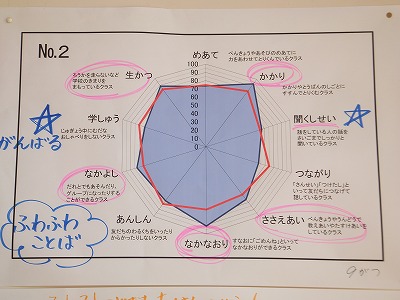 No.2
めあて
べんきょうやあそびのめあてに
力をあわせてとりくんでいるクラス
100
90
80
70
60
50
40
30
20
10
0
かかり
かかりやとうばんのしごとに
すすんでとりくむクラス
聞くしせい
話をしている人の話を
さいごまでしっかりと
聞いているクラス
つながり
「さんせい」「つけたし」と
いって友だちにつなげて
話しているクラス
ささえあい
べんきょうやうんどうで
教えあいやたすけあいを
しているクラス
なかなおり
すなおに「ごめんね」といって
なかなおりができるクラス
あんしん
友だちのわるくちをいったり
からかったりしないクラス
なかよし
だれとでもあそんだり、
グループになったりする
ことができるクラス
学しゅう
じゅぎょう中にむだな
おしゃべりをしないクラス
生かつ
ろうかを走らないなど
学校のきまりを
まもっているクラス
がんばる
ふわふわ
ことば
9がつ